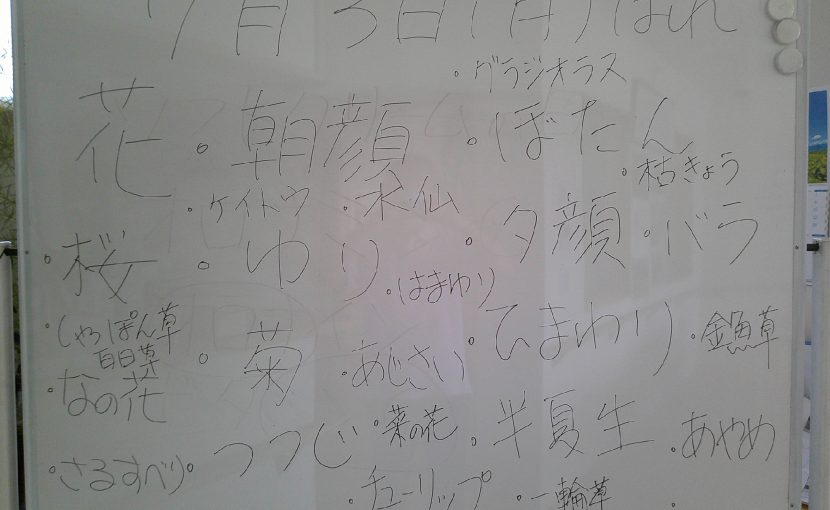 7月3日(月)はれ
・グラジオラス
花・朝顔・ぼたん
・桔きょう
・ケイトウ・水仙
・桜・ゆり・夕顔・バラ
・はまゆり
・しゃっぽん草
百日草
・菊・あじさい・ひまわり・金魚草
・なの花
・さるすべり・つつじ・菜の花・半夏生・あやめ
・チューリップ・一輪草・